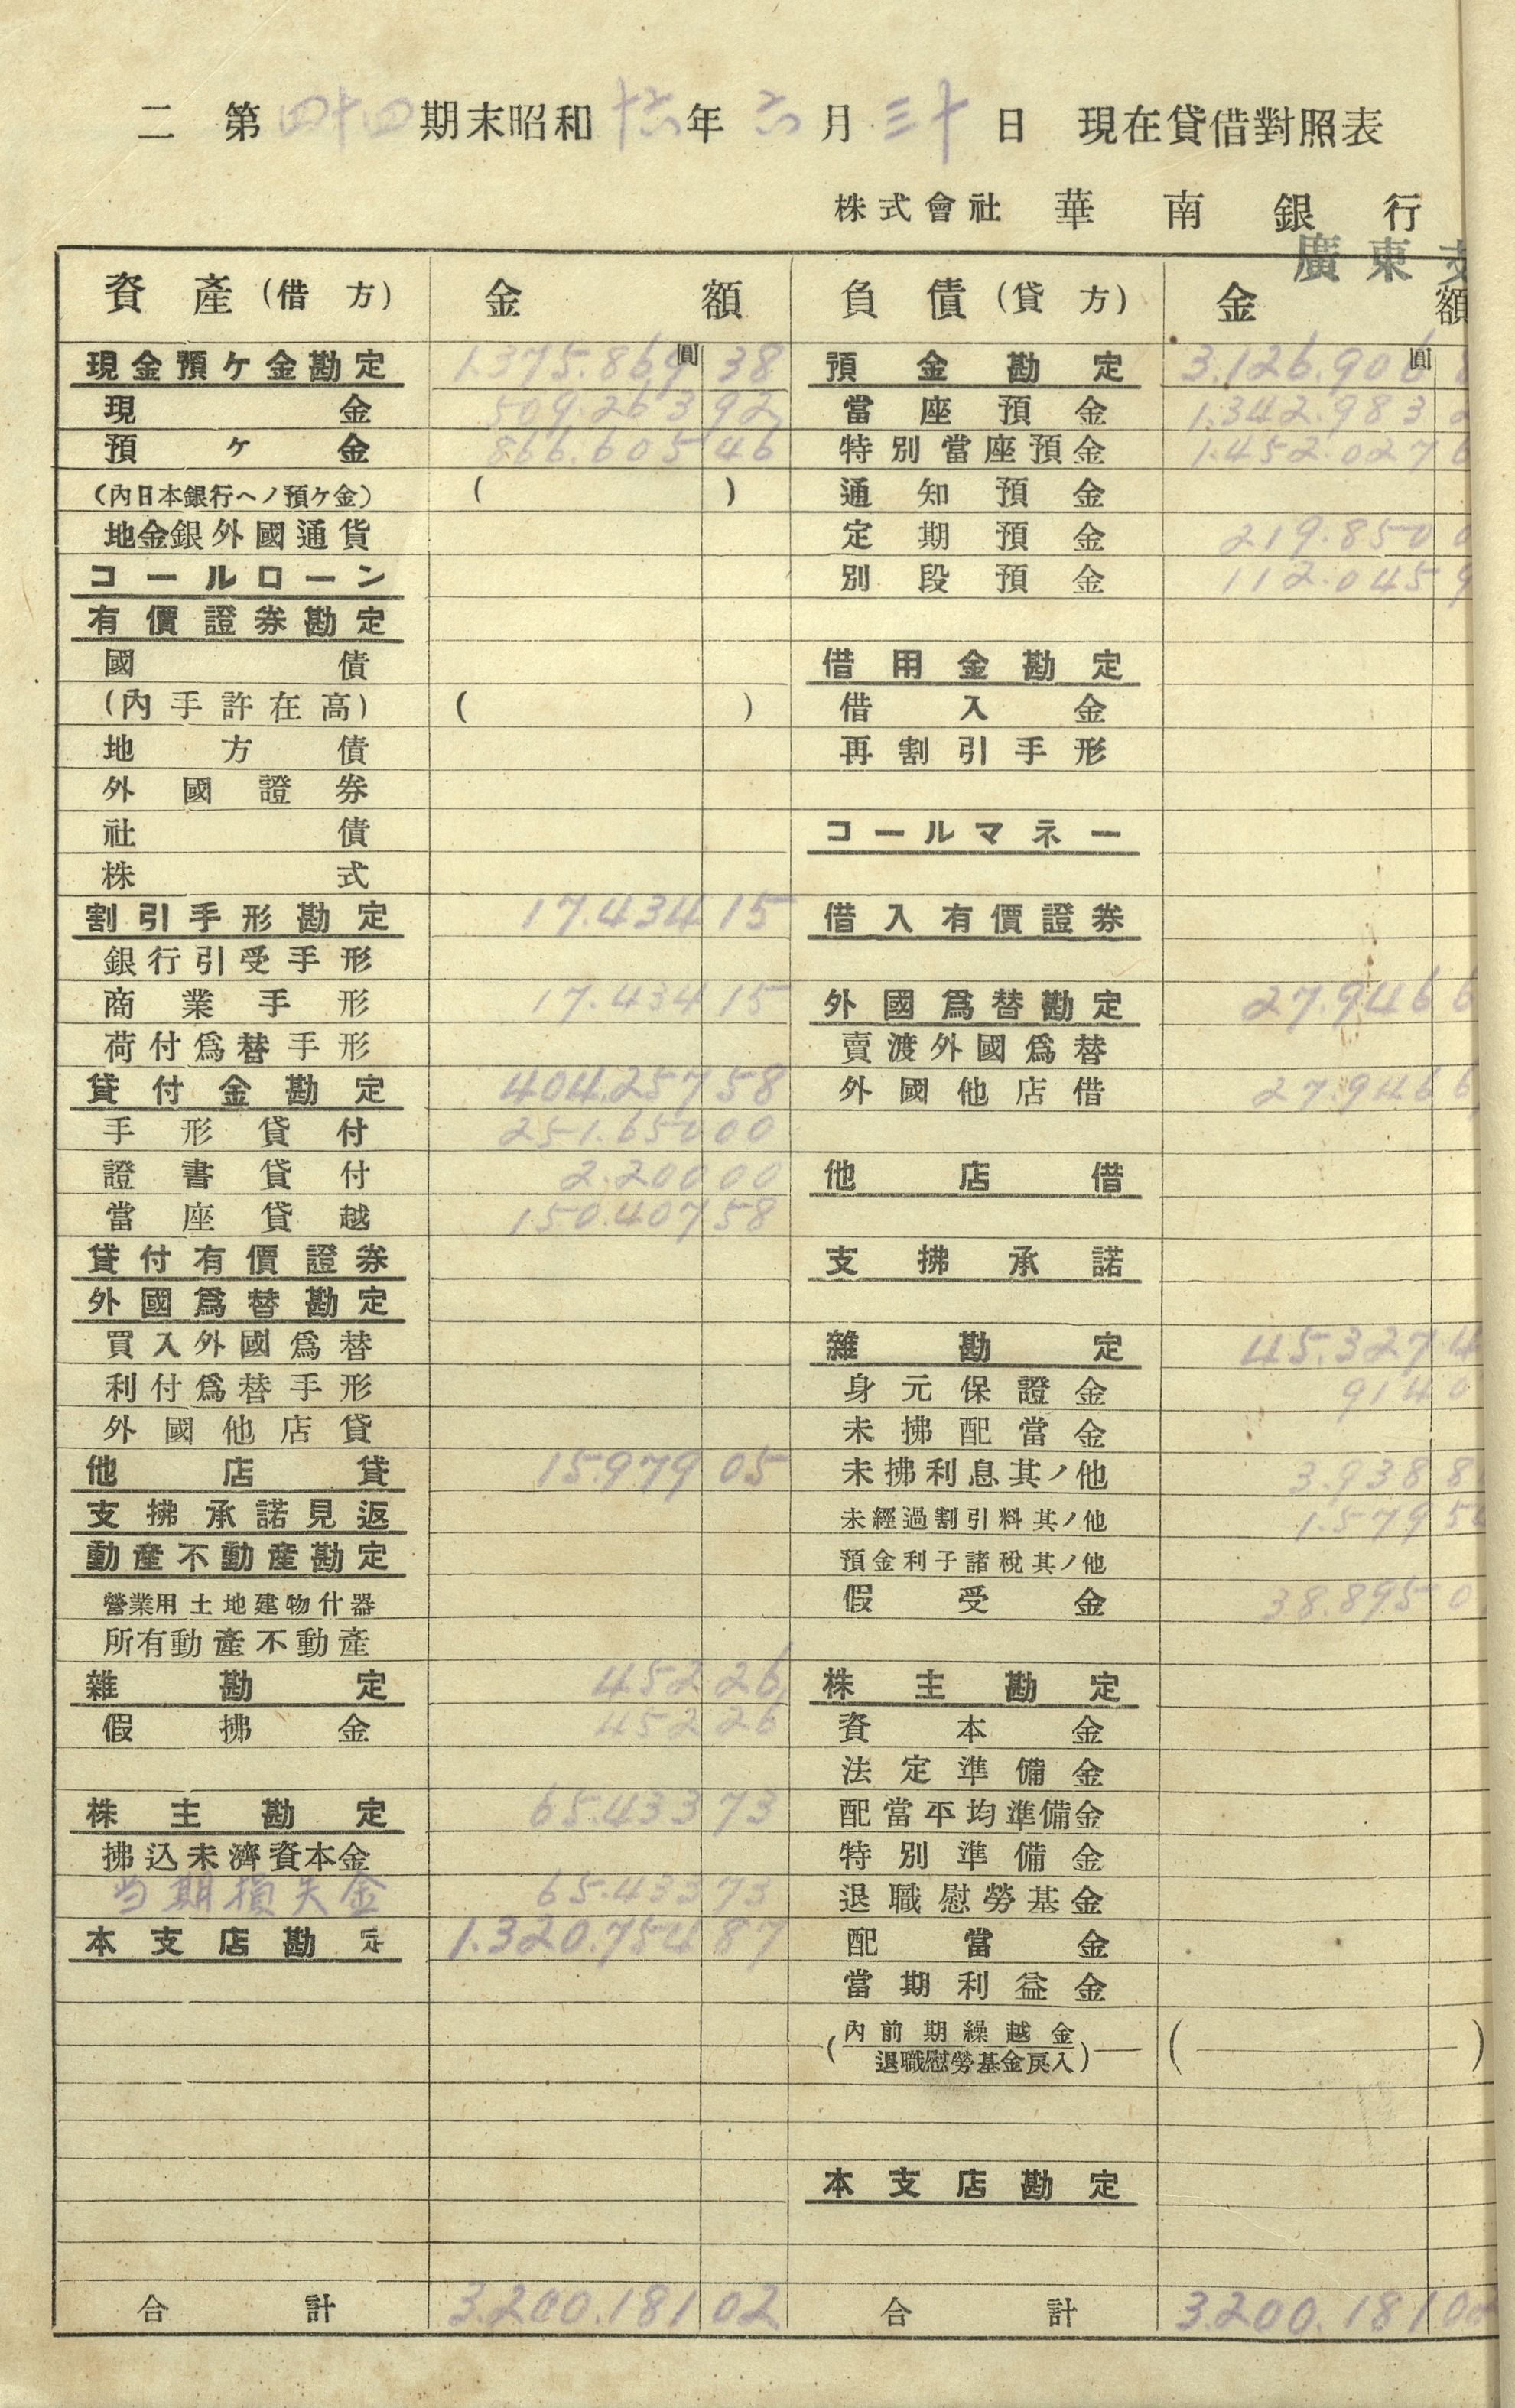 二 第四十四期末昭和十六年六月三十日 現在貸借對照表
株式會社 華南銀行
廣東
資產(借方) 金額 負債(貸方) 金額
現金預ケ金勘定 1.375.869圓38 預金勘定 3.126.906圓8
現金 509.263 92 當座預金 1.342.983 2
預ケ金 866.605 46 特別當座預金 1.452.027 6
(內日本銀行ヘノ預ケ金) ( ) 通知預金
地金銀外國通貨 定期預金 219.850 0
コールローン 別段預金 112.045 9
有價證券勘定
國債 借用金勘定
(內手許在高) ( ) 借入金
地方債 再割引手形
外國證券
社債 コールマネー
株式
割引手形勘定 17.434 15 借入有價證券
銀行引受手形
商業手形 17.434 15 外國爲替勘定 27.946 6
荷付爲替手形 賣渡外國爲替
貸付金勘定 404.257 58 外國他店借 27.946 6
手形貸付 251.650 00
證書貸付 2.200 00 他店借
當座貸越 150.407 58
貸付有價證券 支拂承諾
外國爲替勘定
買入外國爲替 雜勘定 45.327.4
利付爲替手形 身元保證金 914 0
外國他店貸 未拂配當金
他店貸 15.979 05 未拂利息其ノ他 3.938 8
支拂承諾見返 未經過割引料其ノ他 1.579 5
動產不動產勘定 預金利子諸稅其ノ他
營業用土地建物什器 假受金 38.895 0
所有動產不動產
雜勘定 452 26 株主勘定
假拂金 452 26 資本金
法定準備金
株主勘定 65.433 73 配當平均準備金
拂込未濟資本金 特別準備金
当期損失金 65.433 73 退職慰勞基金
本支店勘定 1.320.754 87 配當金
當期利益金
(內前期繰越金 ( )
退職慰勞基金戾入)
本支店勘定
合計 3.200.181 02 合計 3.200.181 02